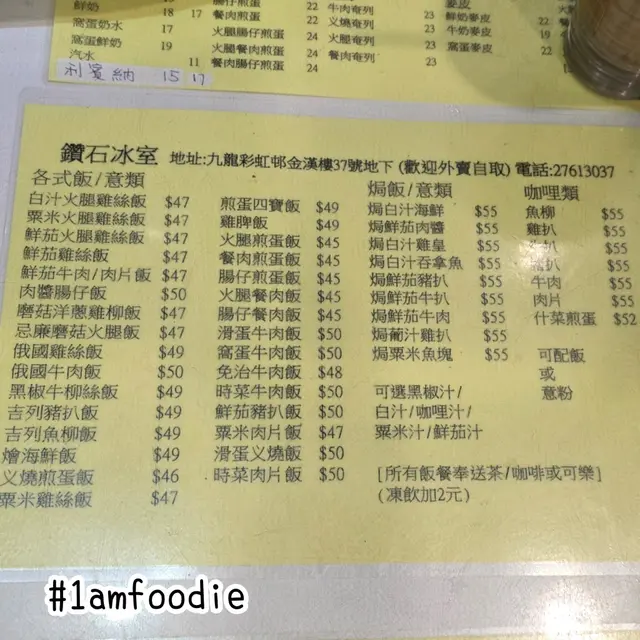 鮮奶 18 17
窩蛋奶水 17
窩蛋鮮奶 19
汽水 11
利賓納 15 17
腸仔煎蛋 22
餐肉煎蛋 22
火腿腸仔煎蛋 24
火腿餐肉煎蛋 24
餐肉腸仔煎蛋 24
牛肉奄列
義燒奄列 23
火腿奄列 23
餐肉奄列 23
麥皮
鮮奶麥皮 22
牛奶麥皮 19
窩蛋麥皮 22
鑽石冰室 地址:九龍彩虹邨金漢樓37號地下 (歡迎外賣自取) 電話:27613037
各式飯/意類
白汁火腿雞絲飯 $47
粟米火腿雞絲飯 $47
鮮茄火腿雞絲飯 $47
鮮茄雞絲飯 $47
鮮茄牛肉/肉片飯 $47
肉醬腸仔飯 $50
磨菇洋蔥雞柳飯 $47
忌廉磨菇火腿飯 $47
俄國雞絲飯 $49
俄國牛肉飯 $50
黑椒牛柳絲飯 $49
吉列豬扒飯 $49
吉列魚柳飯 $49
燴海鮮飯 $49
义燒煎蛋飯 $46
粟米雞絲飯 $47
煎蛋四寶飯 $49
雞脾飯 $49
火腿煎蛋飯 $45
餐肉煎蛋飯 $45
腸仔煎蛋飯 $45
火腿餐肉飯 $45
腸仔餐肉飯 $45
滑蛋牛肉飯 $50
窩蛋牛肉飯 $50
免治牛肉飯 $48
時菜牛肉飯 $50
鮮茄豬扒飯 $50
粟米肉片飯 $47
滑蛋义燒飯 $50
時菜肉片飯 $50
焗飯/意類
焗白汁海鮮 $55
焗鮮茄肉醬 $55
焗白汁雞皇 $55
焗白汁吞拿魚 $55
焗鮮茄豬扒 $55
焗鮮茄牛扒 $55
焗鮮茄牛肉 $55
焗葡汁雞扒 $55
焗粟米魚塊 $55
可選黑椒汁/
白汁/咖哩汁/
粟米汁/鮮茄汁
咖哩類
魚柳 $55
雞扒 $55
扒 $55
扒 $55
牛肉 $55
肉片 $55
什菜煎蛋 $52
可配飯
或
意粉
[所有飯餐奉送茶/咖啡或可樂]
(凍飲加2元)
#1amfoodie